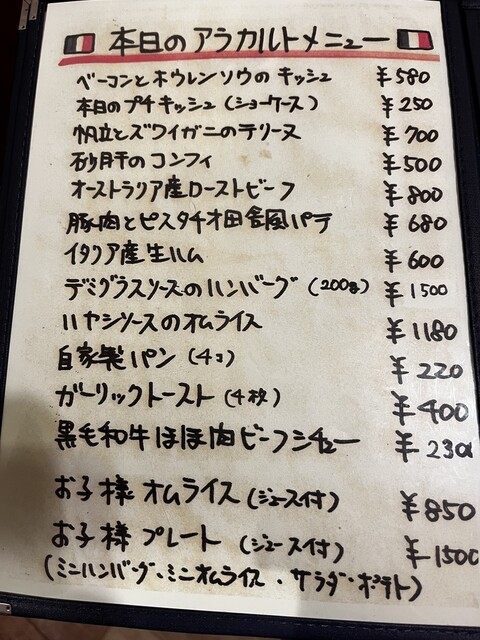 本日のアラカルトメニュー
ベーコンとホウレンソウのキッシュ ¥580
本日のプチキッシュ(ショーケース) ¥250
帆立とズワイガニのテリーヌ ¥700
砂肝のコンフィ ¥500
オーストラリア産ローストビーフ ¥800
豚肉とピスタチオ田舎風パテ ¥680
イタリア産生ハム ¥600
デミグラスソースのハンバーグ(200g) ¥1500
ハヤシソースのオムライス ¥1180
自家製パン(4コ) ¥220
ガーリックトースト(4枚) ¥400
黒毛和牛ほほ肉ビーフシチュー ¥2300
お子様オムライス(ジュース付) ¥850
お子様プレート(ジュース付) ¥1500
(ミニハンバーグ・ミニオムライス・サラダ・ポテト)